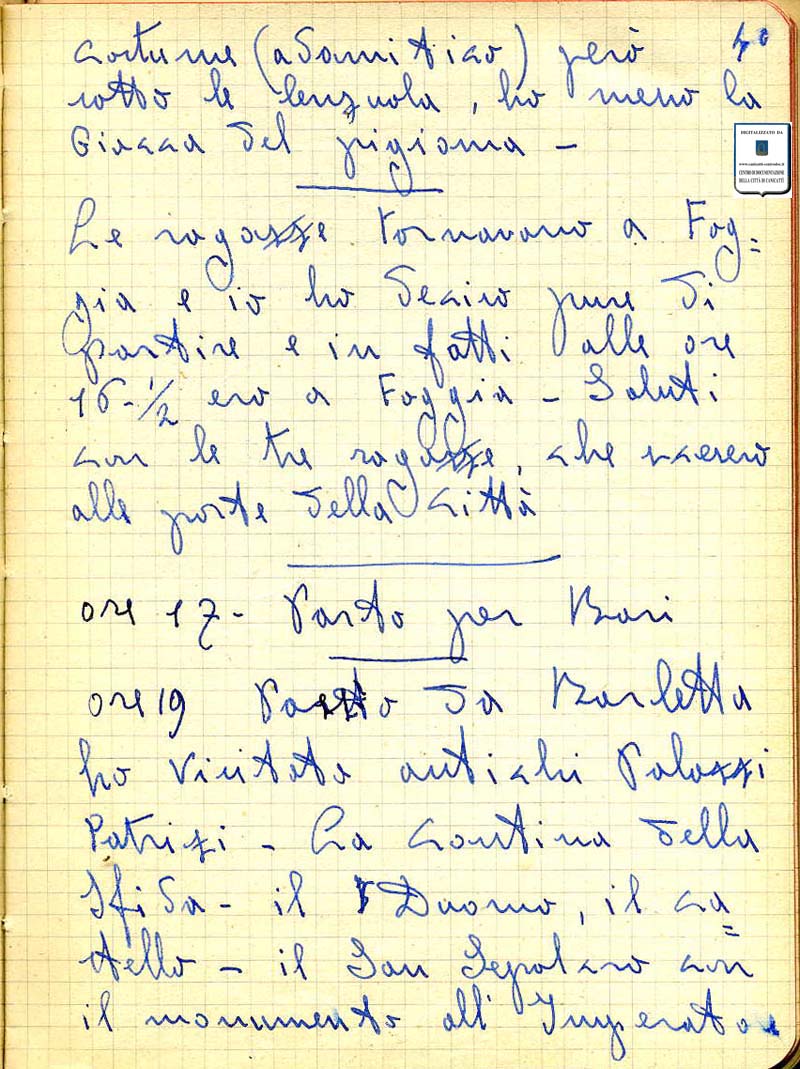 costume (adamitico) però 40
sotto le lenzuola, ho meno la
Giacca del pigiama -
DIGITALIZZATO DA
CENTRO DI DOCUMENTAZIONE
DELLA CITTÀ DI CANICATTÌ
Le ragazze tornavano a Fog=
gia e io ho deciso pure di
partire e in fatti alle ore
16-1/2 ero a Foggia - Saluti
con le tre ragazze, che scesero
alle porte della città
ore 17- Parto per Bari
ore 19 Parto da Barletta
ho visitato antichi Palazzi
Patrizi - La Cantina della
Sfida - il Duomo, il ca=
stello - il San Sepolcro con
il monumento all'Imperato